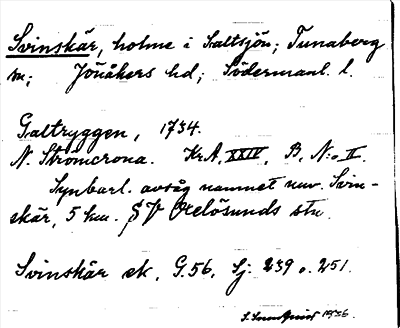 Svinskär, holme i Saltsjön; Tunaberg
sn; Jönåkers hd; Södermanl. l.
Galtryggen, 1734.
N. Strömcrona. Kr.A, XXIV, B, N:o II.
Synbarl. avsåg namnet nuv. Svin-
skär, 5 km. SV Oxelösunds stn.
Svinskär ek, G.56, Sj: 239 o. 251.
1936.